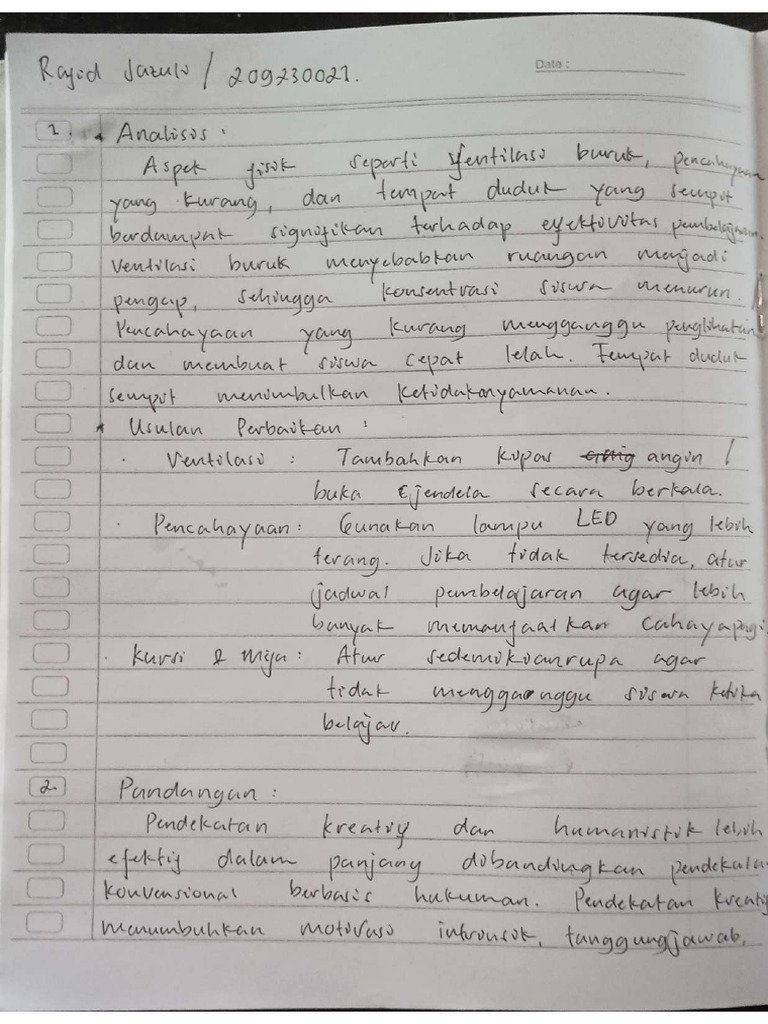 Rajid Jazuli / 209230021.
Date :
1. * Analisis :
Aspek fisik seperti ventilasi buruk, pencahayaan
yang kurang, dan tempat duduk yang sempit
berdampak signifikan terhadap efektivitas pembelajaran.
Ventilasi buruk menyebabkan ruangan menjadi
pengap, sehingga konsentrasi siswa menurun.
Pencahayaan yang kurang mengganggu penglihatan
dan membuat siswa cepat lelah. Tempat duduk
sempit menimbulkan ketidaknyamanan.
* Usulan Perbaikan :
· Ventilasi : Tambahkan kipas angin /
buka jendela secara berkala.
· Pencahayaan : Gunakan lampu LED yang lebih
terang. Jika tidak tersedia, atur
jadwal pembelajaran agar lebih
banyak memanfaatkan cahaya pagi.
· Kursi & Meja : Atur sedemikianrupa agar
tidak mengganggu siswa ketika
belajar.
2. Pandangan :
Pendekatan kreatif dan humanistik lebih
efektif dalam panjang dibandingkan pendekata
konvensional berbasis hukuman. Pendekatan kreatif
menumbuhkan motivasi intrinsik, tanggungjawab,